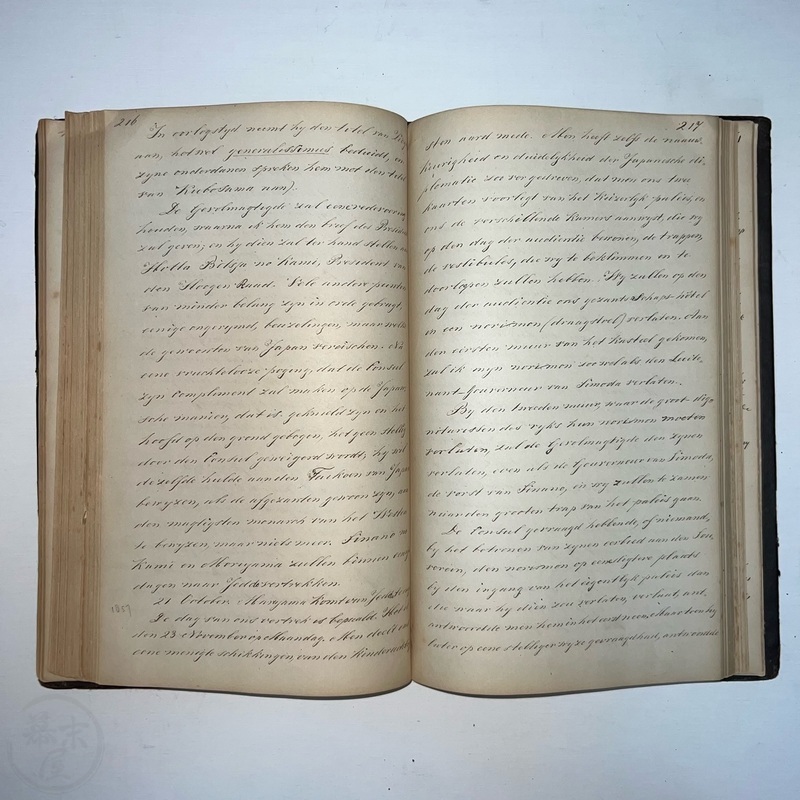 216
In oorlogstyd neemt hy den titel van
aan, hetwel generalissimus beduidt, en
zyne onderdanen spreken hem met den titel
van Kiebo Sama aan).
De Gevolmagtigde zal eene redevoering
houden, waarna ik hem den brief des
zal geven; en hy dien zal ter hand stellen
Hotta Bitsju no Kami, President van
den Hoogen Raad. Vele andere punten
van minder belang zyn in orde gebragt,
eenige ongerymd, beuzelingen, maar welke
de gewoonten van Japan vereischen. Na
eene vruchtelooze poging, dat de Consul
zyn compliment zal maken op de Japan-
sche manier, dat is, geknield zyn en het
hoofd op den grond gebogen, hetgeen stellig
door den Consul geweigerd wordt; hy wil
dezelfde hulde aan den Taikoen van Japan
bewyzen, als de afgezanten gewoon zyn, aan
den magtigsten monarch van het Westen
te bewyzen, maar niets meer. Sinano no
Kami en Moriyama zullen binnen eenige
dagen naar Jeddo vertrekken.
1857
21 October. Marayama komt van Jeddo
De dag van ons vertrek is bepaald. Het is
den 23 November op Maandag. Men deelt ons
eene menigte schikkingen, van den kinderachtig-
217
sten aard mede. Men heeft zelfs de naauw-
keurigheid en duidelykheid der Japansche di-
plomatie zoo ver gedreven, dat men ons twee
kaarten voorlegt van het Keizerlyk paleis, en
ons de verschillende kamers aanwyst, die wy
op den dag der audientie bewonen, de trappen,
de vestibules, die wy te beklimmen en te
doorloopen zullen hebben. Wy zullen op den
dag der audientie ons gezantschaps-hôtel
in een norimon (draagstoel) verlaten. Aan
den eersten muur van het kasteel gekomen,
zal ik myn norimon zoowel als den Luite-
nant-Gouverneur van Simoda verlaten.
By den tweeden muur, waar de groot-dig-
nitarissen des ryks hun norimon moeten
verlaten, zal de Gevolmagtigde den zynen
verlaten, even als de Gouverneur van Simoda,
de vorst van Sinano, en wy zullen te zamen
naar den grooten trap van het paleis gaan.
De Consul gevraagd hebbende, of niemand,
by het betoonen van zynen eerbied aan den Sou-
verein, den norimon op eene digtere plaats
by den ingang van het eigentlyk paleis dan
die waar hy dien zou verlaten, verlaat,
antwoordde men hem in het eerst neen; maar toen hy
later op eene stelliger wyze gevraagd had, antwoordde